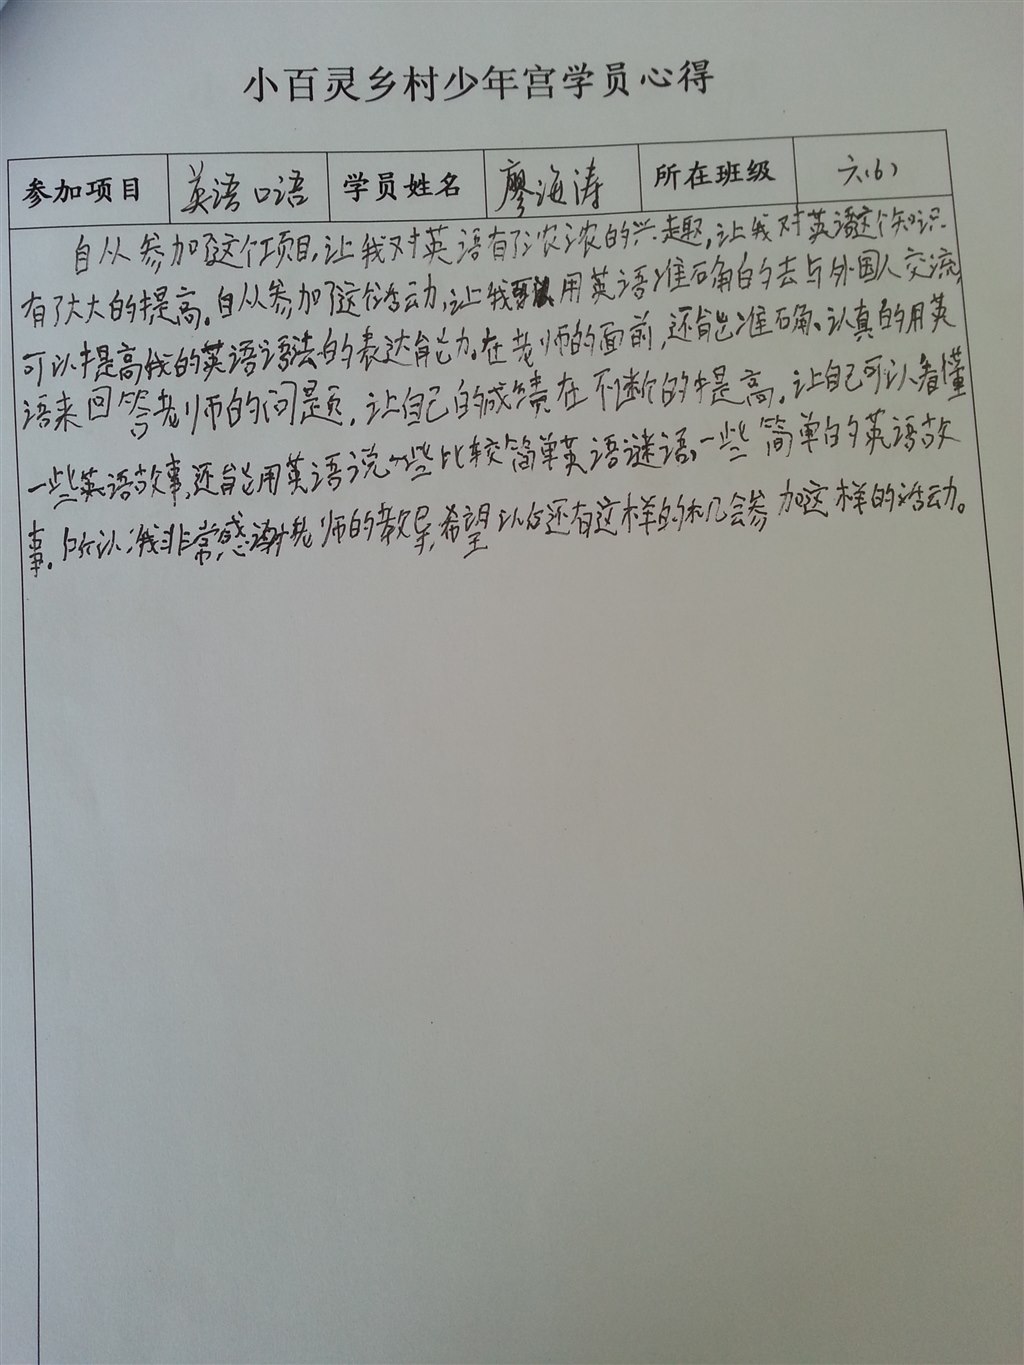 小百灵乡村少年宫学员心得
参加项目 英语口语 学员姓名 廖海涛 所在班级 六(6)
自从参加了这个项目,让我对英语有了浓浓的兴趣,让我对英语这个知识
有了大大的提高。自从参加了这个活动,让我用英语准确的去与外国人交流,
可以提高我的英语语法的表达能力。在老师的面前,还能准确、认真的用英
语来回答老师的问题,让自己的成绩在不断的提高。让自己可以看懂
一些英语故事,还能用英语说一些比较简单英语谜语,一些简单的英语故
事。所以,我非常感谢老师的教导,希望以后还有这样的机会参加这样的活动。